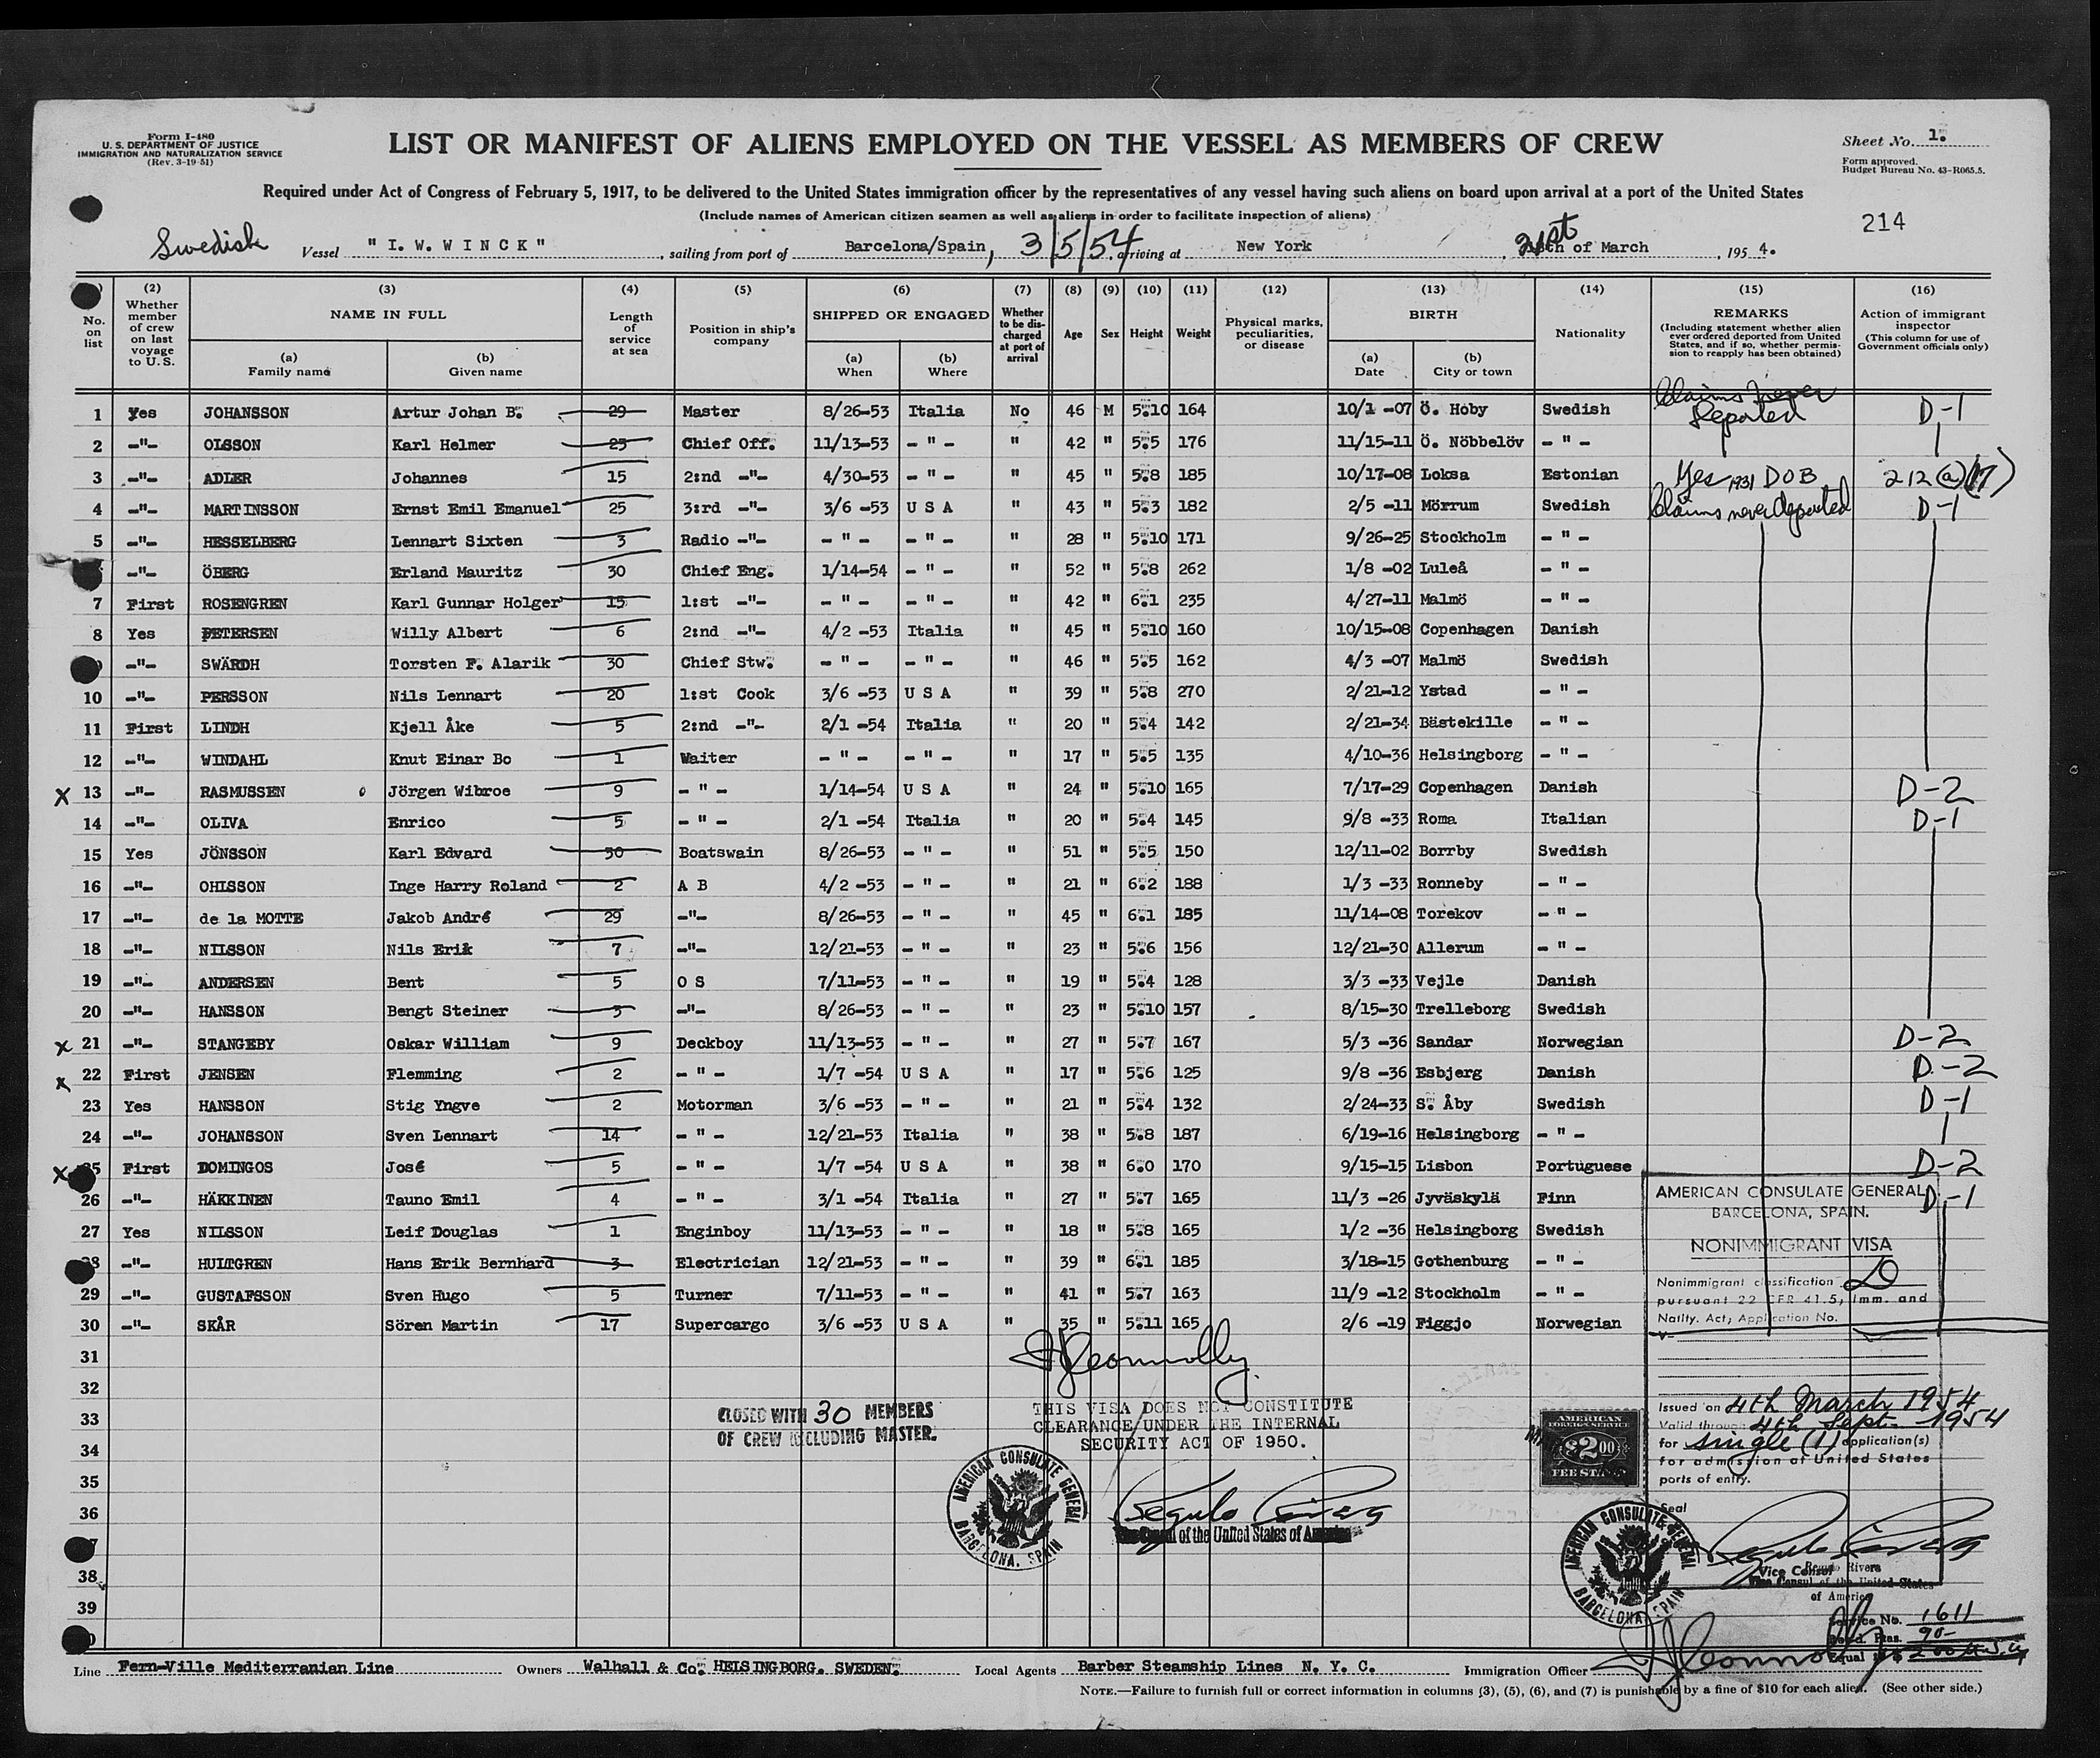 Form I-480
U. S. DEPARTMENT OF JUSTICE
IMMIGRATION AND NATURALIZATION SERVICE
(Rev. 3-19-51)
LIST OR MANIFEST OF ALIENS EMPLOYED ON THE VESSEL AS MEMBERS OF CREW
Sheet No. 1.
Form approved.
Budget Bureau No. 43-R065.5.
Required under Act of Congress of February 5, 1917, to be delivered to the United States immigration officer by the representatives of any vessel having such aliens on board upon arrival at a port of the United States
(Include names of American citizen seamen as well as aliens in order to facilitate inspection of aliens)
214
Swedish Vessel "I. W. WINCK", sailing from port of Barcelona/Spain, 3/5/54 arriving at New York, 21st of March, 1954.
(2) (3) (4) (5) (6) (7) (8) (9) (10) (11) (12) (13) (14) (15) (16)
No. on list
Whether member of crew on last voyage to U.S.
NAME IN FULL
(a) Family name
(b) Given name
Length of service at sea
Position in ship's company
SHIPPED OR ENGAGED
(a) When
(b) Where
Whether to be discharged at port of arrival
Age
Sex
Height
Weight
Physical marks, peculiarities, or disease
BIRTH
(a) Date
(b) City or town
Nationality
REMARKS
(Including statement whether alien ever ordered deported from United States, and if so, whether permission to reapply has been obtained)
Action of immigrant inspector
(This column for use of Government officials only)
1 Yes JOHANSSON Artur Johan B. 29 Master 8/26-53 Italia No 46 M 5.10 164 10/1 -07 Ö. Hoby Swedish Claims never deported D-1
2 -"- OLSSON Karl Helmer 25 Chief Off. 11/13-53 - " - " 42 " 5.5 176 11/15-11 Ö. Nöbbelöv - " -
3 -"- ADLER Johannes 15 2:nd -"- 4/30-53 - " - " 45 " 5.8 185 10/17-08 Loksa Estonian Yes 1931 DOB 212(a)(17)
4 -"- MARTINSSON Ernst Emil Emanuel 25 3:rd -"- 3/6 -53 U S A " 43 " 5.3 182 2/5 -11 Mörrum Swedish Claims never deported D-1
5 -"- HESSELBERG Lennart Sixten 3 Radio -"- - " - - " - " 28 " 5.10 171 9/26-25 Stockholm - " -
-"- ÖBERG Erland Mauritz 30 Chief Eng. 1/14-54 - " - " 52 " 5.8 262 1/8 -02 Luleå - " -
7 First ROSENGREN Karl Gunnar Holger 15 1:st -"- - " - - " - " 42 " 6.1 235 4/27-11 Malmö - " -
8 Yes PETERSEN Willy Albert 6 2:nd -"- 4/2 -53 Italia " 45 " 5.10 160 10/15-08 Copenhagen Danish
-"- SWÄRDH Torsten F. Alarik 30 Chief Stw. - " - - " - " 46 " 5.5 162 4/3 -07 Malmö Swedish
10 -"- PERSSON Nils Lennart 20 1:st Cook 3/6 -53 U S A " 39 " 5.8 270 2/21-12 Ystad - " -
11 First LINDH Kjell Åke 5 2:nd -"- 2/1 -54 Italia " 20 " 5.4 142 2/21-34 Bästekille - " -
12 -"- WINDAHL Knut Einar Bo 1 Waiter - " - - " - " 17 " 5.5 135 4/10-36 Helsingborg - " -
x 13 -"- RASMUSSEN Jörgen Wibroe 9 - " - 1/14-54 U S A " 24 " 5.10 165 7/17-29 Copenhagen Danish D-2
14 -"- OLIVA Enrico 5 - " - 2/1 -54 Italia " 20 " 5.4 145 9/8 -33 Roma Italian D-1
15 Yes JÖNSSON Karl Edvard 30 Boatswain 8/26-53 - " - " 51 " 5.5 150 12/11-02 Borrby Swedish
16 -"- OHLSSON Inge Harry Roland 2 A B 4/2 -53 - " - " 21 " 6.2 188 1/3 -33 Ronneby - " -
17 -"- de la MOTTE Jakob André 29 -"- 8/26-53 - " - " 45 " 6.1 185 11/14-08 Torekov - " -
18 -"- NILSSON Nils Erik 7 -"- 12/21-53 - " - " 23 " 5.6 156 12/21-30 Allerum - " -
19 -"- ANDERSEN Bent 5 O S 7/11-53 - " - " 19 " 5.4 128 3/3 -33 Vejle Danish
20 -"- HANSSON Bengt Steiner 3 -"- 8/26-53 - " - " 23 " 5.10 157 8/15-30 Trelleborg Swedish
x 21 -"- STANGEBY Oskar William 9 Deckboy 11/13-53 - " - " 27 " 5.7 167 5/3 -36 Sandar Norwegian D-2
x 22 First JENSEN Flemming 2 - " - 1/7 -54 U S A " 17 " 5.6 125 9/8 -36 Esbjerg Danish D-2
23 Yes HANSSON Stig Yngve 2 Motorman 3/6 -53 - " - " 21 " 5.4 132 2/24-33 S. Åby Swedish D-1
24 -"- JOHANSSON Sven Lennart 14 - " - 12/21-53 Italia " 38 " 5.8 187 6/19-16 Helsingborg - " -
x 25 First DOMINGOS José 5 - " - 1/7 -54 U S A " 38 " 6.0 170 9/15-15 Lisbon Portuguese D-2
26 -"- HÄKKINEN Tauno Emil 4 - " - 3/1 -54 Italia " 27 " 5.7 165 11/3 -26 Jyväskylä Finn D-1
27 Yes NILSSON Leif Douglas 1 Enginboy 11/13-53 - " - " 18 " 5.8 165 1/2 -36 Helsingborg Swedish
28 -"- HULTGREN Hans Erik Bernhard 3 Electrician 12/21-53 - " - " 39 " 6.1 185 3/18-15 Gothenburg - " -
29 -"- GUSTAFSSON Sven Hugo 5 Turner 7/11-53 - " - " 41 " 5.7 163 11/9 -12 Stockholm - " -
30 -"- SKÅR Sören Martin 17 Supercargo 3/6 -53 U S A " 35 " 5.11 165 2/6 -19 Figgjo Norwegian
31
32
33
34
35
36
38
39
AMERICAN CONSULATE GENERAL
BARCELONA, SPAIN.
NONIMMIGRANT VISA
Nonimmigrant classification D
pursuant 22 CFR 41.5, Imm. and
Natlty. Act; Application No.
V-
Issued on 4th March 1954
Valid through 4th Sept. 1954
for single (1) application(s)
for admission at United States
ports of entry.
Seal
Vice Consul
Rivera
Vice Consul of the United States
of America
Service No. 1611
90-
Equal
JJConnolly
CLOSED WITH 30 MEMBERS
OF CREW INCLUDING MASTER.
THIS VISA DOES NOT CONSTITUTE
CLEARANCE UNDER THE INTERNAL
SECURITY ACT OF 1950.
AMERICAN CONSULATE GENERAL
BARCELONA, SPAIN
Consul of the United States of America
AMERICAN
FOREIGN SERVICE
$2.00
FEE STAMP
AMERICAN CONSULATE GENERAL
BARCELONA, SPAIN
Line Fern-Ville Mediterranian Line Owners Walhall & Co. HELSINGBORG. SWEDEN. Local Agents Barber Steamship Lines N. Y. C. Immigration Officer JJConnolly
NOTE.—Failure to furnish full or correct information in columns (3), (5), (6), and (7) is punishable by a fine of $10 for each alien. (See other side.)